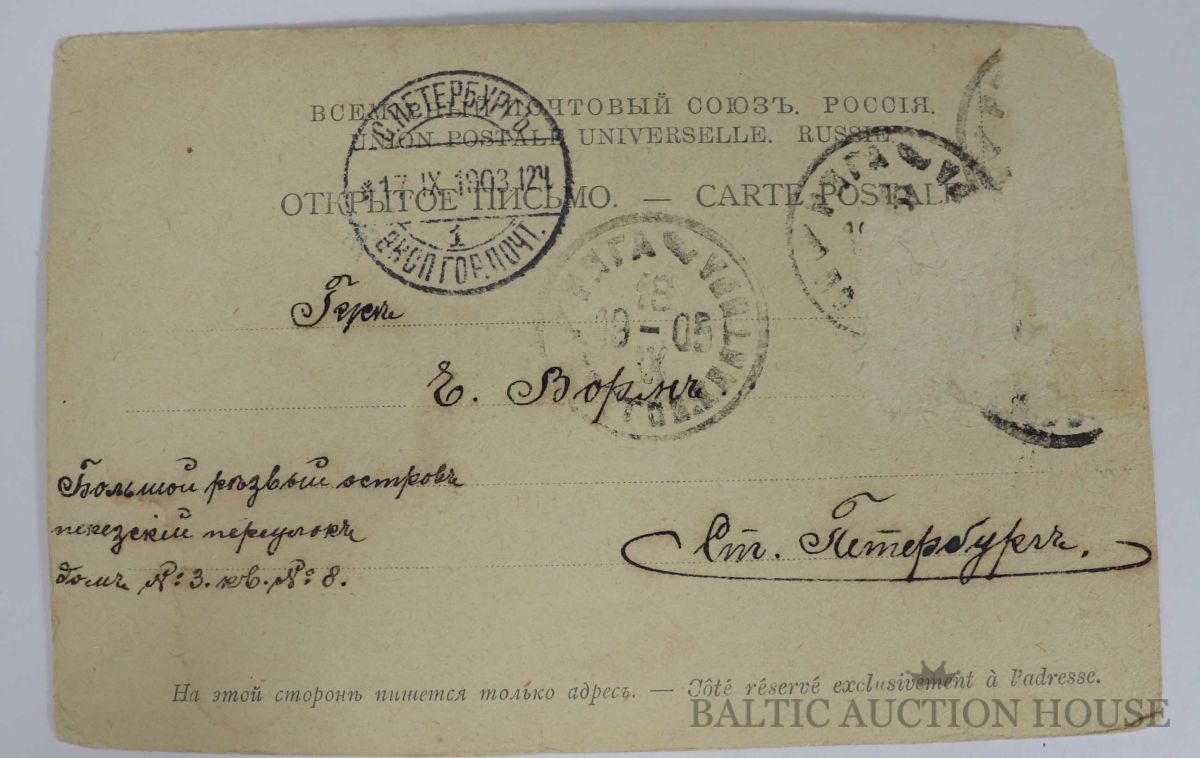 ВСЕМІРНЫЙ ПОЧТОВЫЙ СОЮЗЪ. РОССІЯ.
UNION POSTALE UNIVERSELLE. RUSSIE.
ОТКРЫТОЕ ПИСЬМО. — CARTE POSTALE
С.ПЕТЕРБУРГЪ
17.IX.1903.12Ч
1
ЭКСП.ГОР.ПОЧТ.
РИГА
РИГА
16
IX
Е. Вормъ
Большой рѣзвый островъ
переулокъ
домъ №: 3. кв. №: 8.
Ст. Петербургъ.
На этой сторонѣ пишется только адресъ. — Côté réservé exclusivement à l'adresse.
BALTIC AUCTION HOUSE